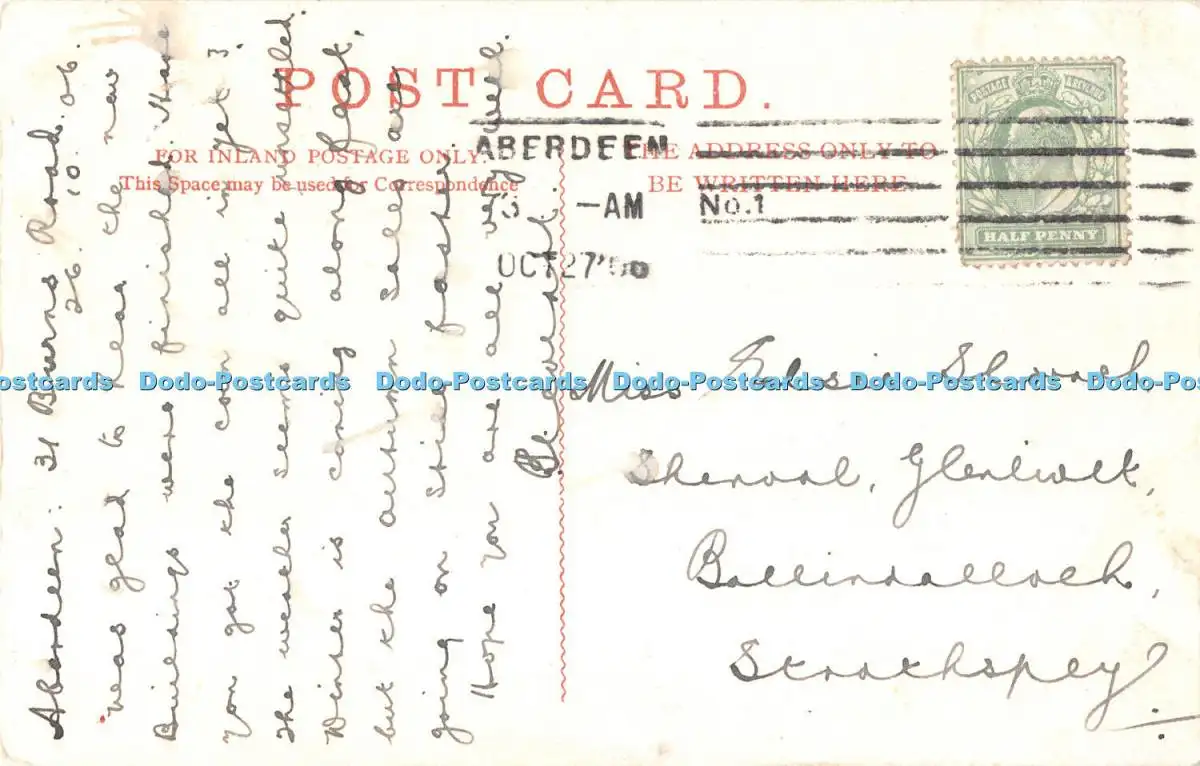 POST CARD.
FOR INLAND POSTAGE ONLY.
This Space may be used for Correspondence
THE ADDRESS ONLY TO
BE WRITTEN HERE.
ABERDEEN
-AM No.1
OCT 27
POSTAGE REVENUE
HALF PENNY
Aberdeen: 31 Burns Road.
26. 10. 06.
was glad to hear the new
Buildings were finished. Have
you got the corn all in yet?
The weather seems quite unsettled.
Winter is coming along fast,
but the autumn Sales are
going on still faster.
Hope you are all very well.
Miss Elsie
Glenlivet,
Ballindalloch,
Strathspey
Dodo-Postcards Dodo-Postcards Dodo-Postcards Dodo-Postcards Dodo-Postcards